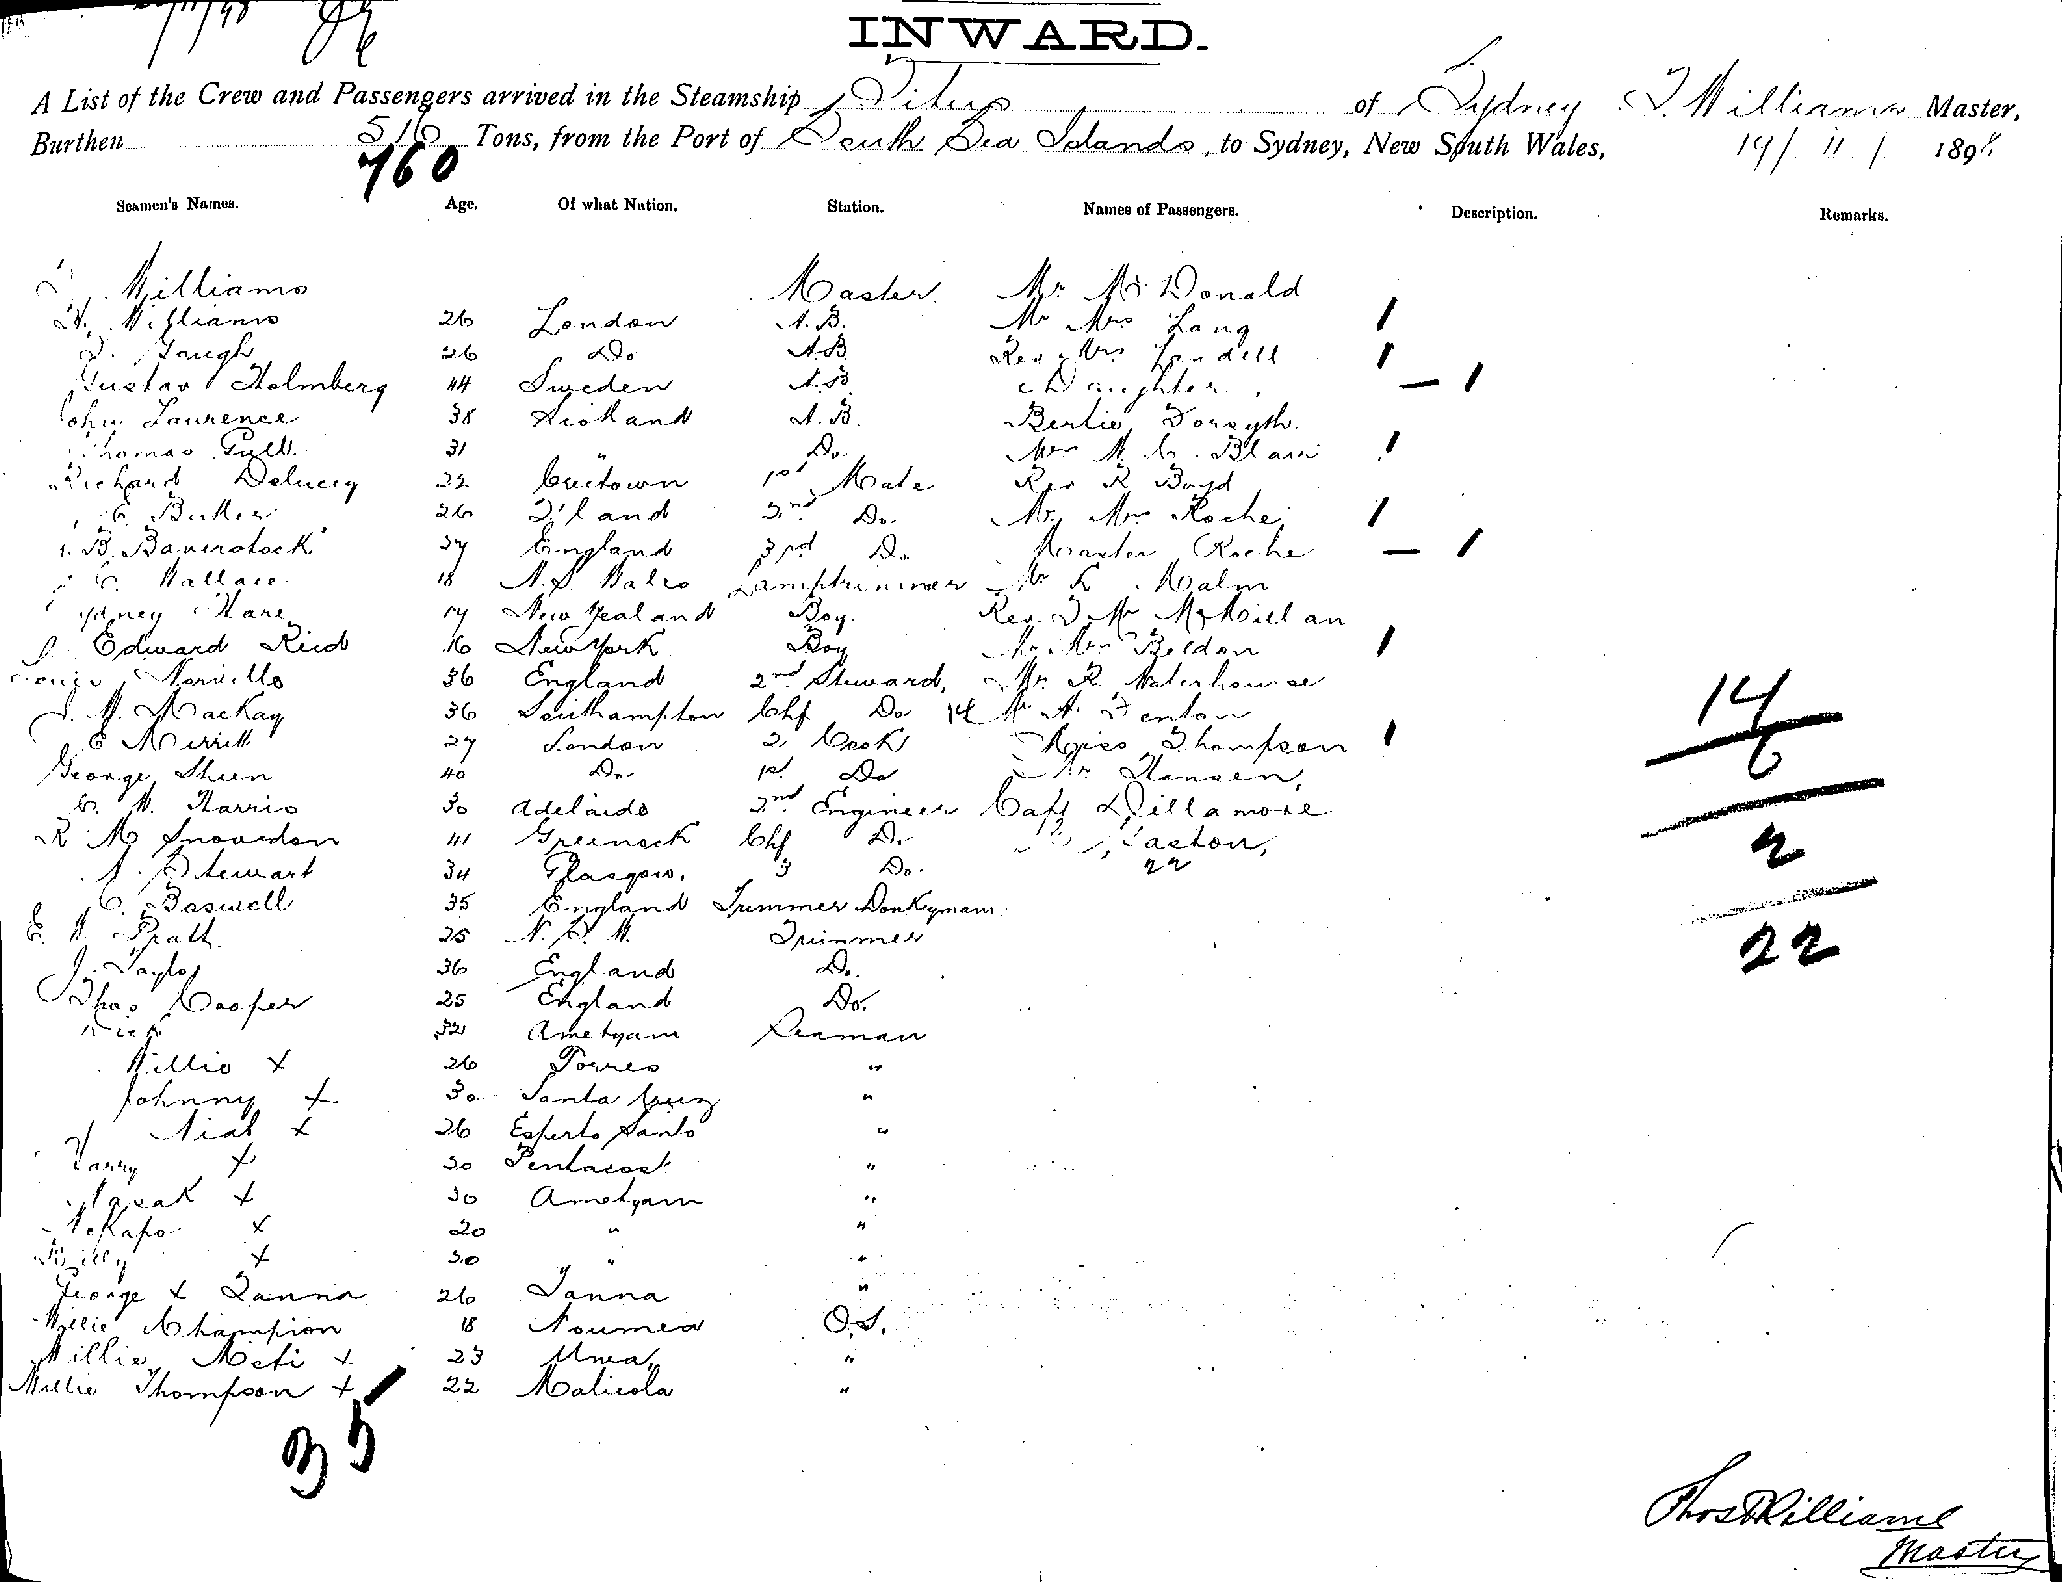 INWARD.
A List of the Crew and Passengers arrived in the Steamship Titus of Sydney T. Williams Master,
Burthen 518 Tons, from the Port of South Sea Islands, to Sydney, New South Wales, 19/11/1898
760
Seamen's Names. Age. Of what Nation. Station. Names of Passengers. Description. Remarks.
Williams Master Mr McDonald
W. Williams 26 London A.B. Mr Mrs Lang
Gaugh 26 Do A.B. Rev Mrs Landell
Gustav Holmberg 44 Sweden A.B. Daughter
John Laurence 38 A.B. Bertie Forsyth
Thomas 31 " Do. Mrs Blair
Richard 22 1st Mate Rev R Boyd
26 2nd Do. Mr Mrs Roche
B. Baverstock 27 England 3rd Do Master Roche
C. Wallace 18 N.S. Wales Lamptrimmer Mr Malm
Sydney Hare 17 New Zealand Boy. Rev McMillan
Edward Reid 16 New York Boy Mr Mrs Boldon
36 England 2nd Steward, Mr R. Waterhouse
MacKay 36 Southampton Chf Do 14 Mr A. Fenton
E Merritt 27 London 2 Cook Miss Thompson
George 40 Do 1st Do Mr Hansen,
C. W. Harris 30 Adelaide 2nd Engineer Capt Dillamore
R M Snowdon 41 Greenock Chf Do
A. Stewart 34 Glasgow. 3 Do. 22
C. Boswell 35 England Trimmer Donkyman
E. W. Pratt 25 N.S.W. Trimmer
J. Taylor 36 England Do.
Thos Cooper 25 England Do.
Dick 32 Ametyam Seaman
Willie x 26 Torres "
Johnny x 30 Santa Cruz "
x 26 Esperto Santo "
Harry x 30 Pentacost "
x 30 Ametyam "
x 20 " "
Billy x 30 " "
George x Tanna 26 Tanna "
Willie Champion 18 Noumea O.S.
Willie x 23 "
Willie Thompson x 22 Malicola "
35
14
6
2
22
Thos Williams
Master